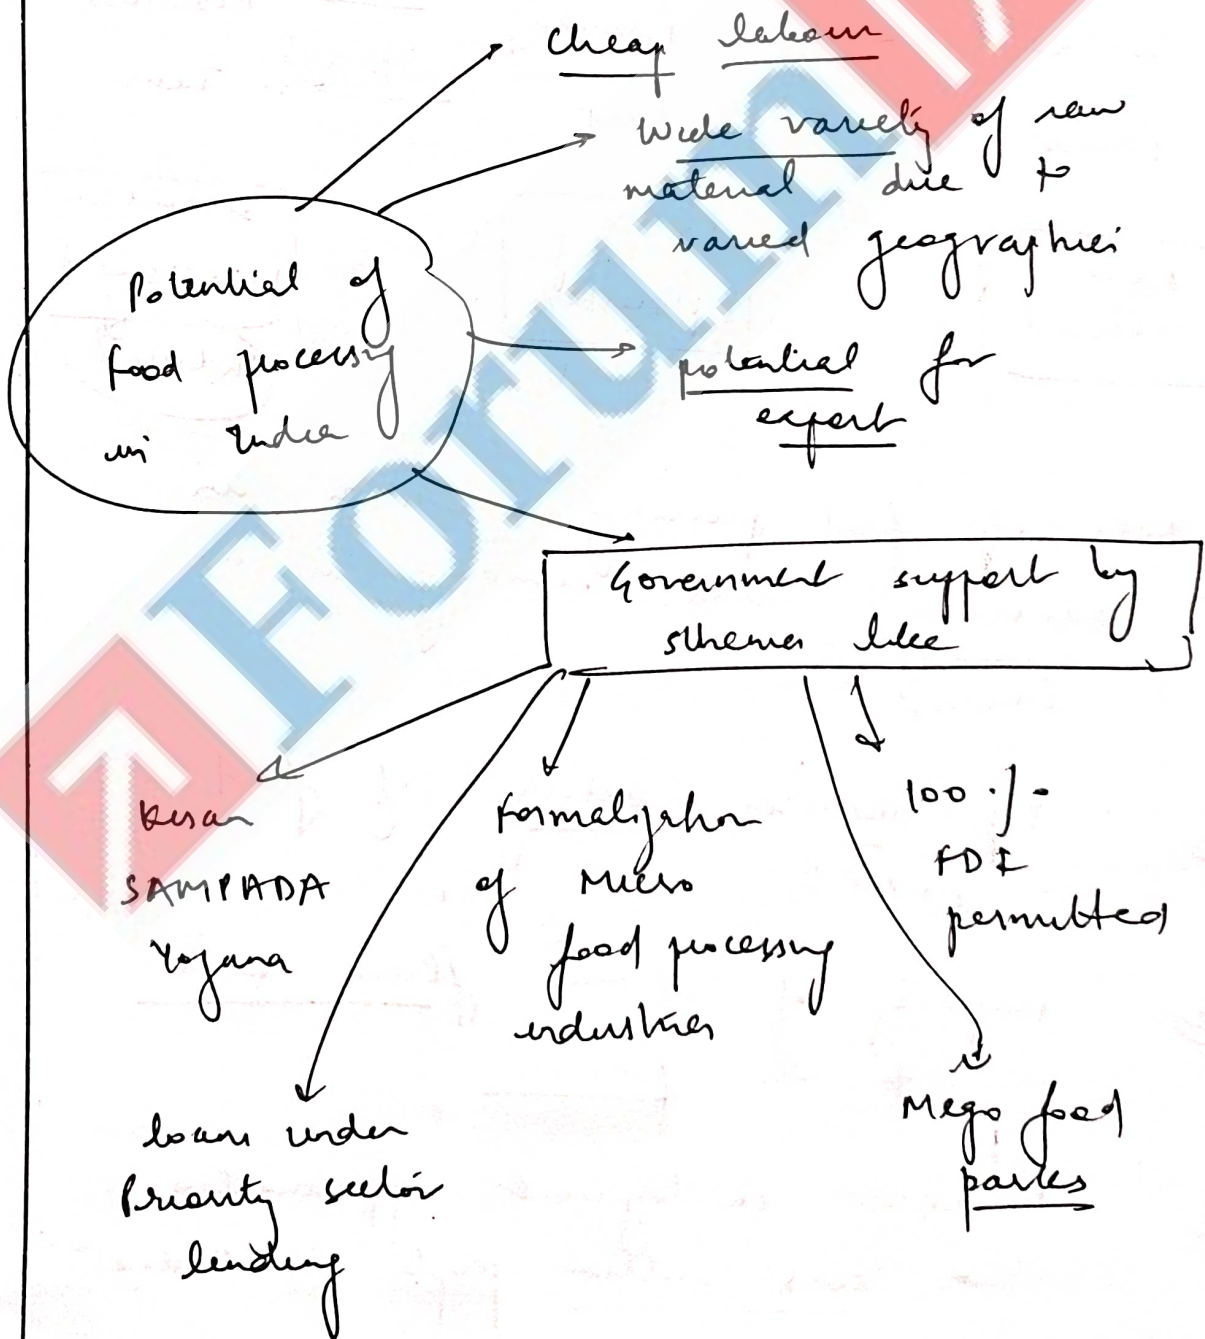 Cheap labour
Wide variety of raw
material due to
varied geographies
Potential of
food processing
in India
potential for
export
Government support by
schemes like
Kisan
SAMPADA
Yojana
Formalization
of Micro
food processing
industries
100 %
FDI
permitted
loans under
Priority sector
lending
Mega food
parks
ForumI